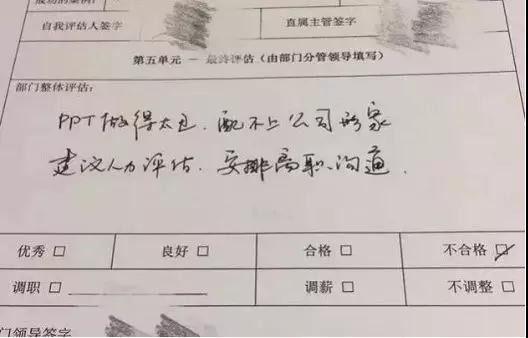 成功的案例:
自我评估人签字 直属主管签字
第五单元 — 最终评估（由部门分管领导填写）
部门整体评估:
PPT做得太丑、配不上公司形象
建议人力评估、安排离职沟通.
优秀 □ 良好 □ 合格 □ 不合格 ☑
调职 □ 调薪 □ 不调整 □
门领导签字